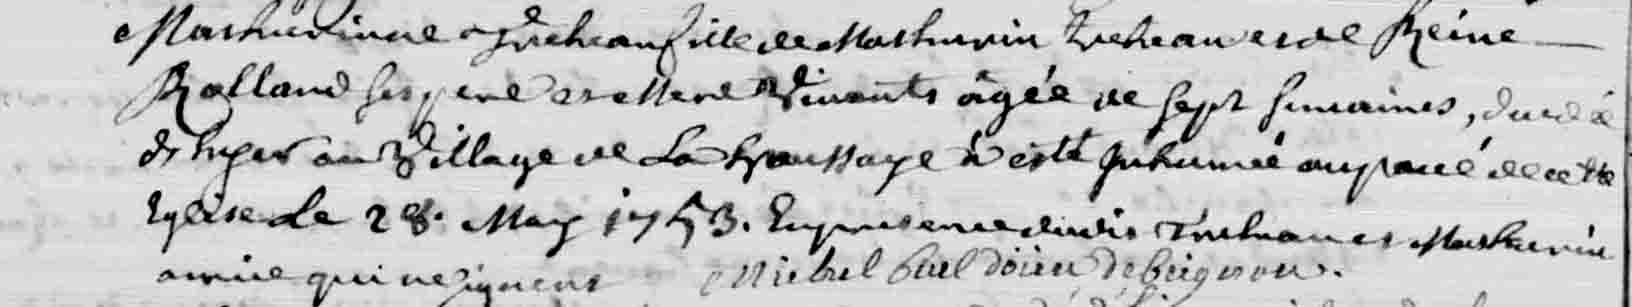 Mathurinne Trehean fille de Mathurin Trehean et de Reine
Rolland ses pere et mere Vivants âgée de sept semaines, decedée
d'hyer au Village de La houssaye à esté Inhumée au pavé de cette
Eglise le 28. May 1753. En presence dudit Trehean et Mathurin
qui ne signent Michel doien de beignon.